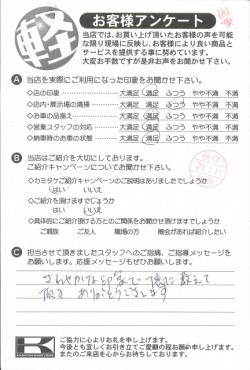 軽
お客様アンケート
当店では、お買い上げ頂いたお客様の声を可能
な限り現場に反映し、お客様により良い商品と
サービスを提供する事に努めています。
大変お手数ですが是非お声をお聞かせ下さい。
A 当店を実際にご利用になった印象をお聞かせ下さい。
◇店の印象 大満足 満足 ふつう やや不満 不満
◇店内・展示場の清掃 大満足 満足 ふつう やや不満 不満
◇お車の品揃え 大満足 満足 ふつう やや不満 不満
◇営業スタッフの対応 大満足 満足 ふつう やや不満 不満
◇納車時のお車の状態 大満足 満足 ふつう やや不満 不満
B 当店はご紹介を大切にしております。
ご紹介キャンペーンについてお聞かせ下さい。
◇カミタケご紹介キャンペーンのご説明はありましたでしょうか
はい いいえ
◇ご紹介を頂けますでしょうか
はい いいえ
◇具体的にご紹介頂ける方とのご関係をお聞かせ頂けますでしょうか
ご親戚 ご友人 職場の方 機会があれば紹介したい
C 担当させて頂きましたスタッフへのご指摘、ご指導メッセージを
お願いします。応援メッセージもぜひお願いします。
さわやかな印象で 教えて
頂き ありがとうございます
K
ご協力に心よりお礼を申し上げます。
今後とも宜しくお引き立てご愛顧の程お願い申し上げます。
またのご来店を心からお待ちしております。